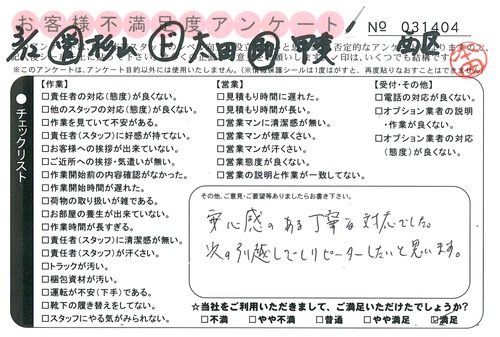 お客様不満足度アンケート
№ 031404
杉山
太田
西区
※このアンケートは、アンケート目的以外には使用いたしません。(※情報保護シールは1度はがすと、再度貼りなおすことはできません。)
チェックリスト
【作業】
□責任者の対応(態度)が良くない。
□他のスタッフの対応(態度)が良くない。
□作業を見ていて不安がある。
□責任者(スタッフ)に好感が持てない。
□お客様への挨拶が出来ていない。
□ご近所への挨拶・気遣いが無い。
□作業開始前の内容確認がなかった。
□作業開始時間が遅れた。
□荷物の取り扱いが雑である。
□お部屋の養生が出来ていない。
□作業時間が長すぎる。
□責任者(スタッフ)に清潔感が無い。
□責任者(スタッフ)が汗くさい。
□トラックが汚い。
□梱包資材が汚い。
□運転が不安(下手)である。
□靴下の履き替えをしてない。
□スタッフにやる気がみられない。
【営業】
□見積もり時間に遅れた。
□見積もり時間が長い。
□営業マンに清潔感が無い。
□営業マンが煙草くさい。
□営業マンが汗くさい。
□営業態度が良くない。
□営業の説明と作業が一致してない。
【受付・その他】
□電話の対応が良くない。
□オプション業者の説明・作業が良くない。
□オプション業者の対応(態度)が良くない。
その他、ご意見・ご要望等ありましたらお書き下さい。
安心感のある丁寧な対応でした。
次の引越しでもリピーターしたいと思います。
☆当社をご利用いただきまして、ご満足いただけたでしょうか?
□不満 □やや不満 □普通 □やや満足 ☑満足